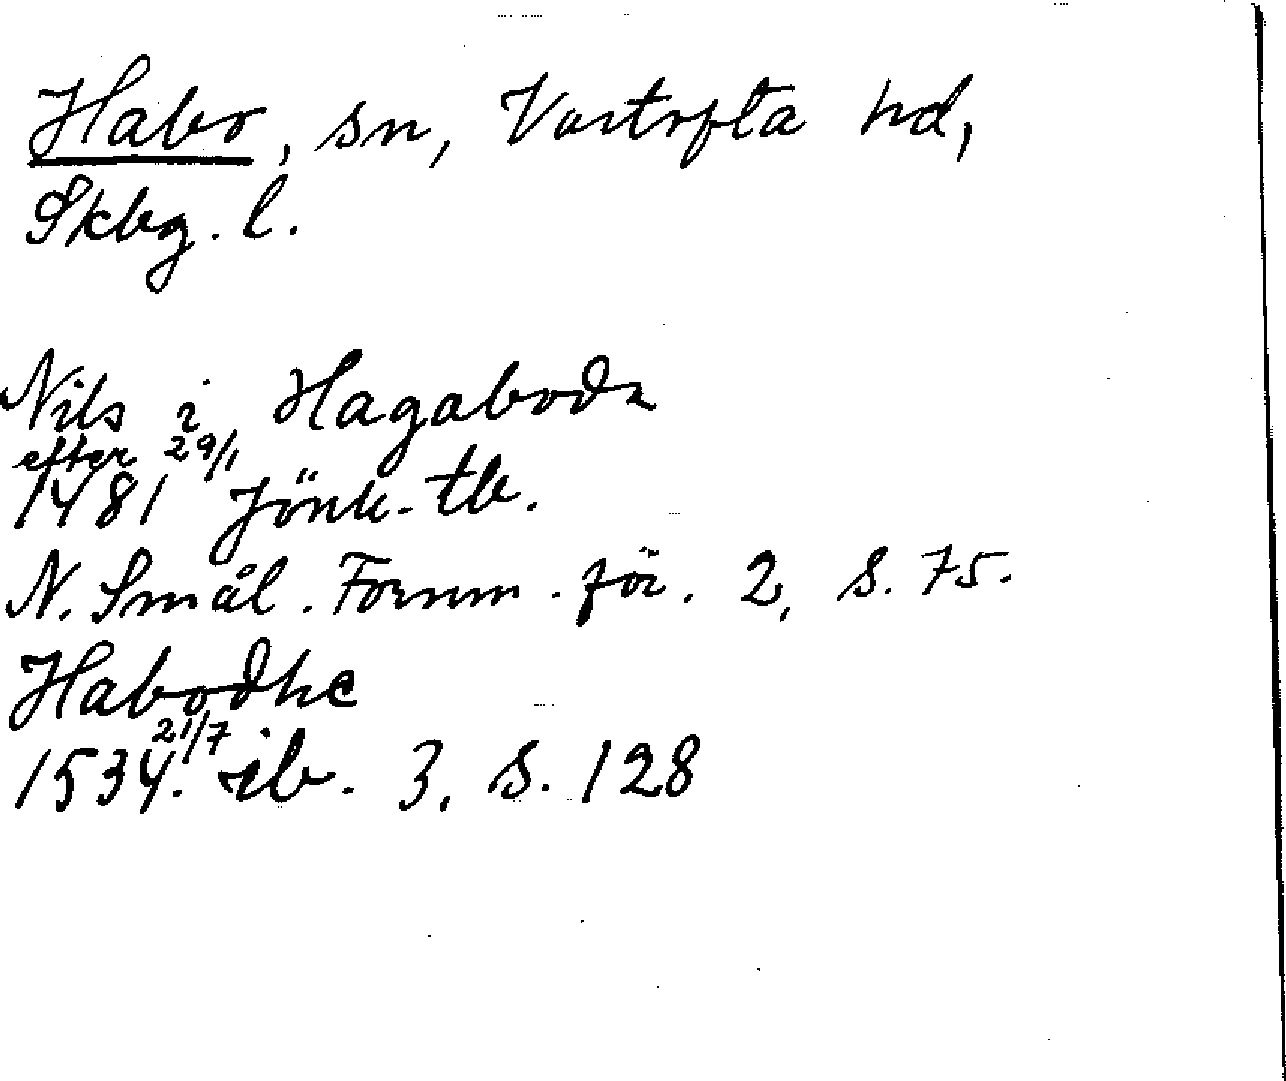 Habo, sn, Vartofta hd,
Skbg. l.
Nils i Hagaboda
efter 29/1
1481 Jönk. tb.
N. Smål. Fornm. för. 2, s. 75.
Habodhe
1534. 21/7 ib. 3, s. 128